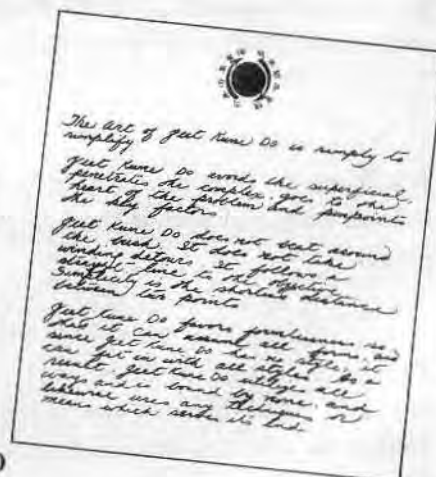 The art of Jeet Kune Do is simply to
simplify
Jeet Kune Do avoids the superficial,
penetrates the complex, goes to the
heart of the problem and pinpoints
the key factors.
Jeet Kune Do does not beat around
the bush. It does not take
winding detours. It follows a
straight line to the objective.
Simplicity is the shortest distance
between two points
Jeet Kune Do favors formlessness so
that it can assume all forms, and
since Jeet Kune Do has no style, it
can fit in with all styles. As a
result, Jeet Kune Do utilizes all
ways and is bound by none, and
likewise uses any techniques or
means which serves its end.